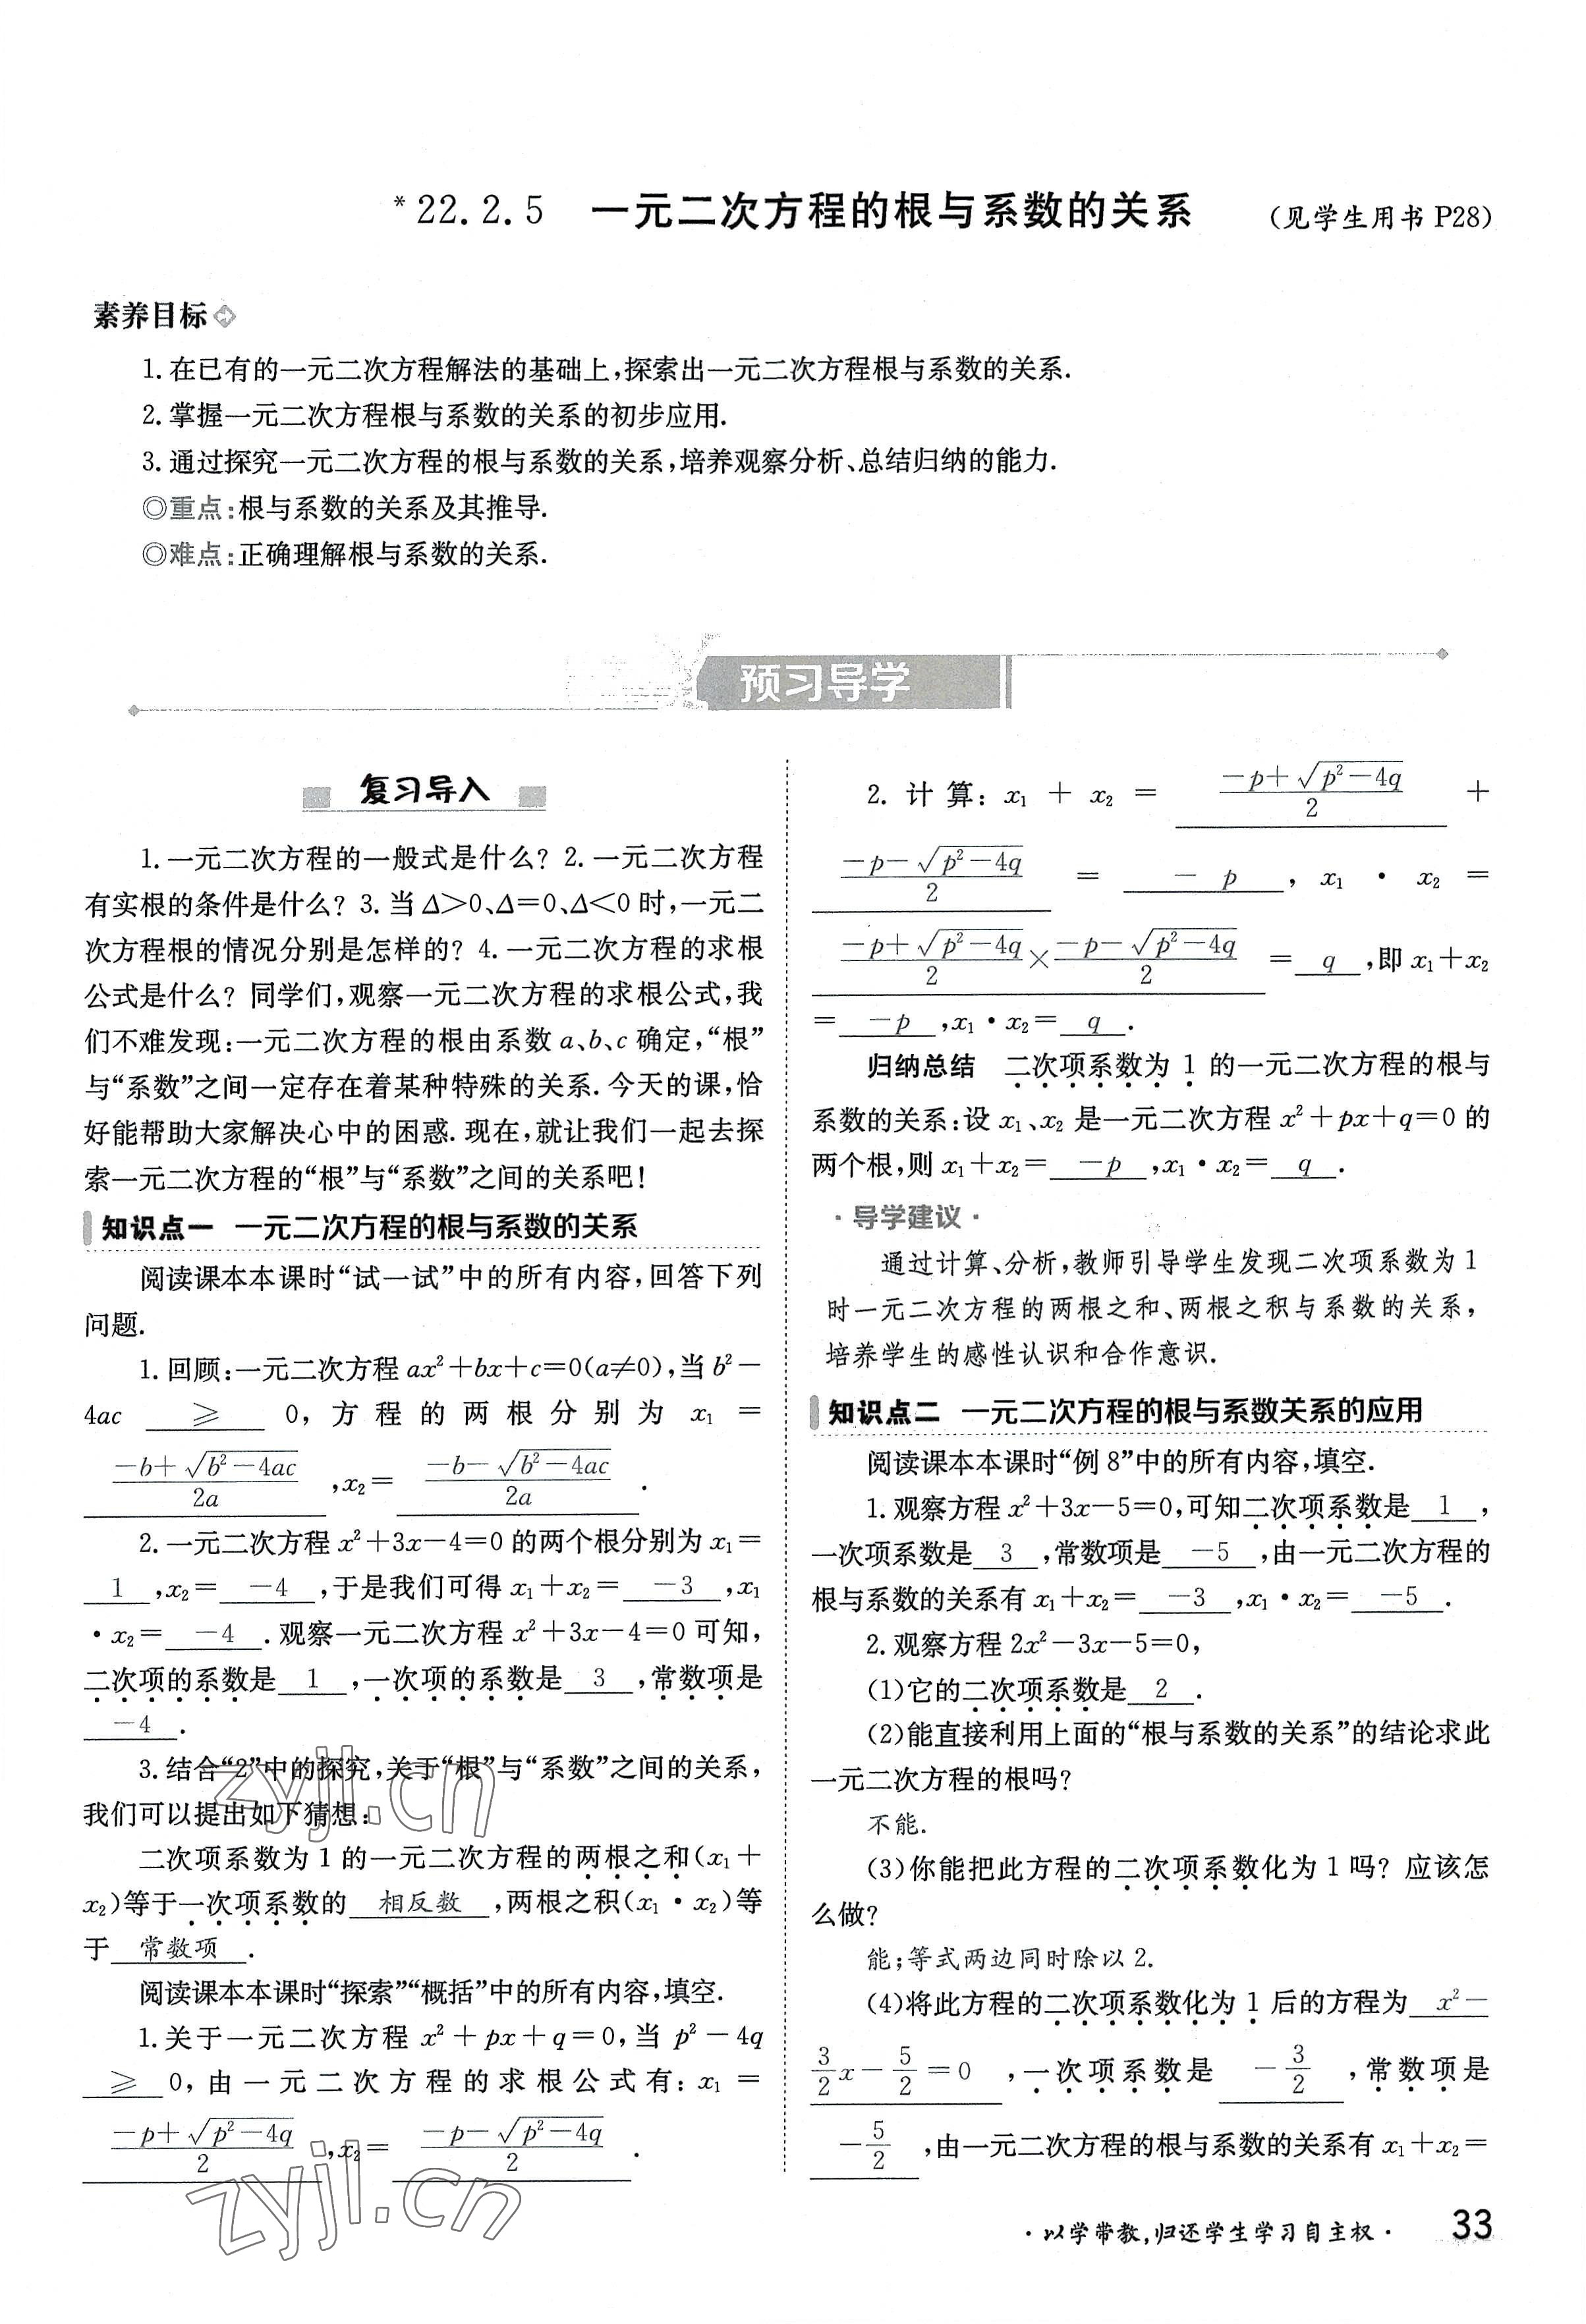 *22.2.5 一元二次方程的根与系数的关系 (见学生用书 P28)
素养目标
1.在已有的一元二次方程解法的基础上,探索出一元二次方程根与系数的关系.
2.掌握一元二次方程根与系数的关系的初步应用.
3.通过探究一元二次方程的根与系数的关系,培养观察分析、总结归纳的能力.
◎重点:根与系数的关系及其推导.
◎难点:正确理解根与系数的关系.
预习导学
复习导入
1.一元二次方程的一般式是什么? 2.一元二次方程
有实根的条件是什么? 3.当 Δ>0、Δ=0、Δ<0 时,一元二
次方程根的情况分别是怎样的? 4.一元二次方程的求根
公式是什么? 同学们,观察一元二次方程的求根公式,我
们不难发现:一元二次方程的根由系数 a、b、c 确定,“根”
与“系数”之间一定存在着某种特殊的关系.今天的课,恰
好能帮助大家解决心中的困惑.现在,就让我们一起去探
索一元二次方程的“根”与“系数”之间的关系吧!
知识点一 一元二次方程的根与系数的关系
阅读课本本课时“试一试”中的所有内容,回答下列
问题.
1.回顾:一元二次方程 ax²+bx+c=0(a≠0),当 b²−
4ac ≥ 0,方程的两根分别为 x₁=
(−b+√(b²−4ac))/(2a) ,x₂= (−b−√(b²−4ac))/(2a) .
2.一元二次方程 x²+3x−4=0 的两个根分别为 x₁=
1 ,x₂= −4 ,于是我们可得 x₁+x₂= −3 ,x₁
·x₂= −4 .观察一元二次方程 x²+3x−4=0 可知,
二次项的系数是 1 ,一次项的系数是 3 ,常数项是
−4 .
3.结合“2”中的探究,关于“根”与“系数”之间的关系,
我们可以提出如下猜想:
二次项系数为 1 的一元二次方程的两根之和(x₁+
x₂)等于一次项系数的 相反数 ,两根之积(x₁·x₂)等
于 常数项 .
阅读课本本课时“探索”“概括”中的所有内容,填空.
1.关于一元二次方程 x²+px+q=0,当 p²−4q
≥ 0,由一元二次方程的求根公式有:x₁=
(−p+√(p²−4q))/2 ,x₂= (−p−√(p²−4q))/2 .
2.计算:x₁+x₂= (−p+√(p²−4q))/2 +
(−p−√(p²−4q))/2 = −p ,x₁·x₂=
(−p+√(p²−4q))/2 × (−p−√(p²−4q))/2 = q ,即 x₁+x₂
= −p ,x₁·x₂= q .
归纳总结 二次项系数为 1 的一元二次方程的根与
系数的关系:设 x₁、x₂ 是一元二次方程 x²+px+q=0 的
两个根,则 x₁+x₂= −p ,x₁·x₂= q .
·导学建议·
通过计算、分析,教师引导学生发现二次项系数为 1
时一元二次方程的两根之和、两根之积与系数的关系,
培养学生的感性认识和合作意识.
知识点二 一元二次方程的根与系数关系的应用
阅读课本本课时“例 8”中的所有内容,填空.
1.观察方程 x²+3x−5=0,可知二次项系数是 1 ,
一次项系数是 3 ,常数项是 −5 ,由一元二次方程的
根与系数的关系有 x₁+x₂= −3 ,x₁·x₂= −5 .
2.观察方程 2x²−3x−5=0,
(1)它的二次项系数是 2 .
(2)能直接利用上面的“根与系数的关系”的结论求此
一元二次方程的根吗?
不能.
(3)你能把此方程的二次项系数化为 1 吗? 应该怎
么做?
能;等式两边同时除以 2.
(4)将此方程的二次项系数化为 1 后的方程为 x²−
3/2 x−5/2=0 ,一次项系数是 −3/2 ,常数项是
−5/2 ,由一元二次方程的根与系数的关系有 x₁+x₂=
·以学带教,归还学生学习自主权· 33
zyjl.cn
zyjl.cn